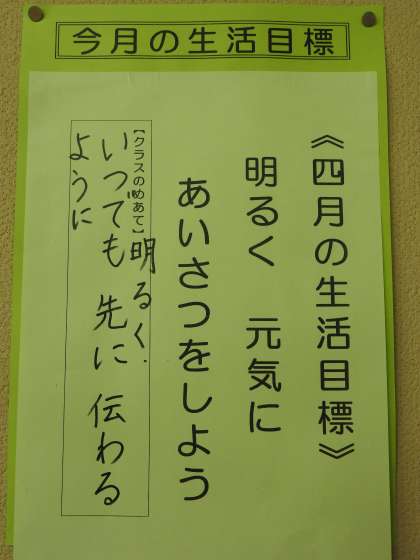 今月の生活目標
《四月の生活目標》
明るく　元気に
あいさつをしよう
【クラスのめあて】明るく.
いつでも　先に　伝わる
ように